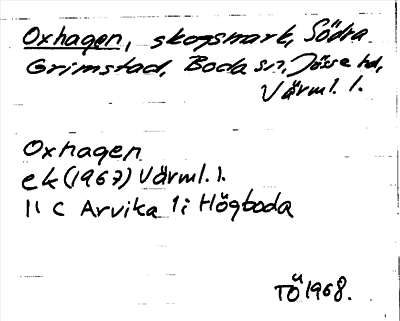 Oxhagen, skogsmark, Södra
Grimstad, Boda sn, Jösse hd,
Värml. l.
Oxhagen
ek (1967) Värml. l.
11 C Arvika 1i Högboda
TÖ 1968.